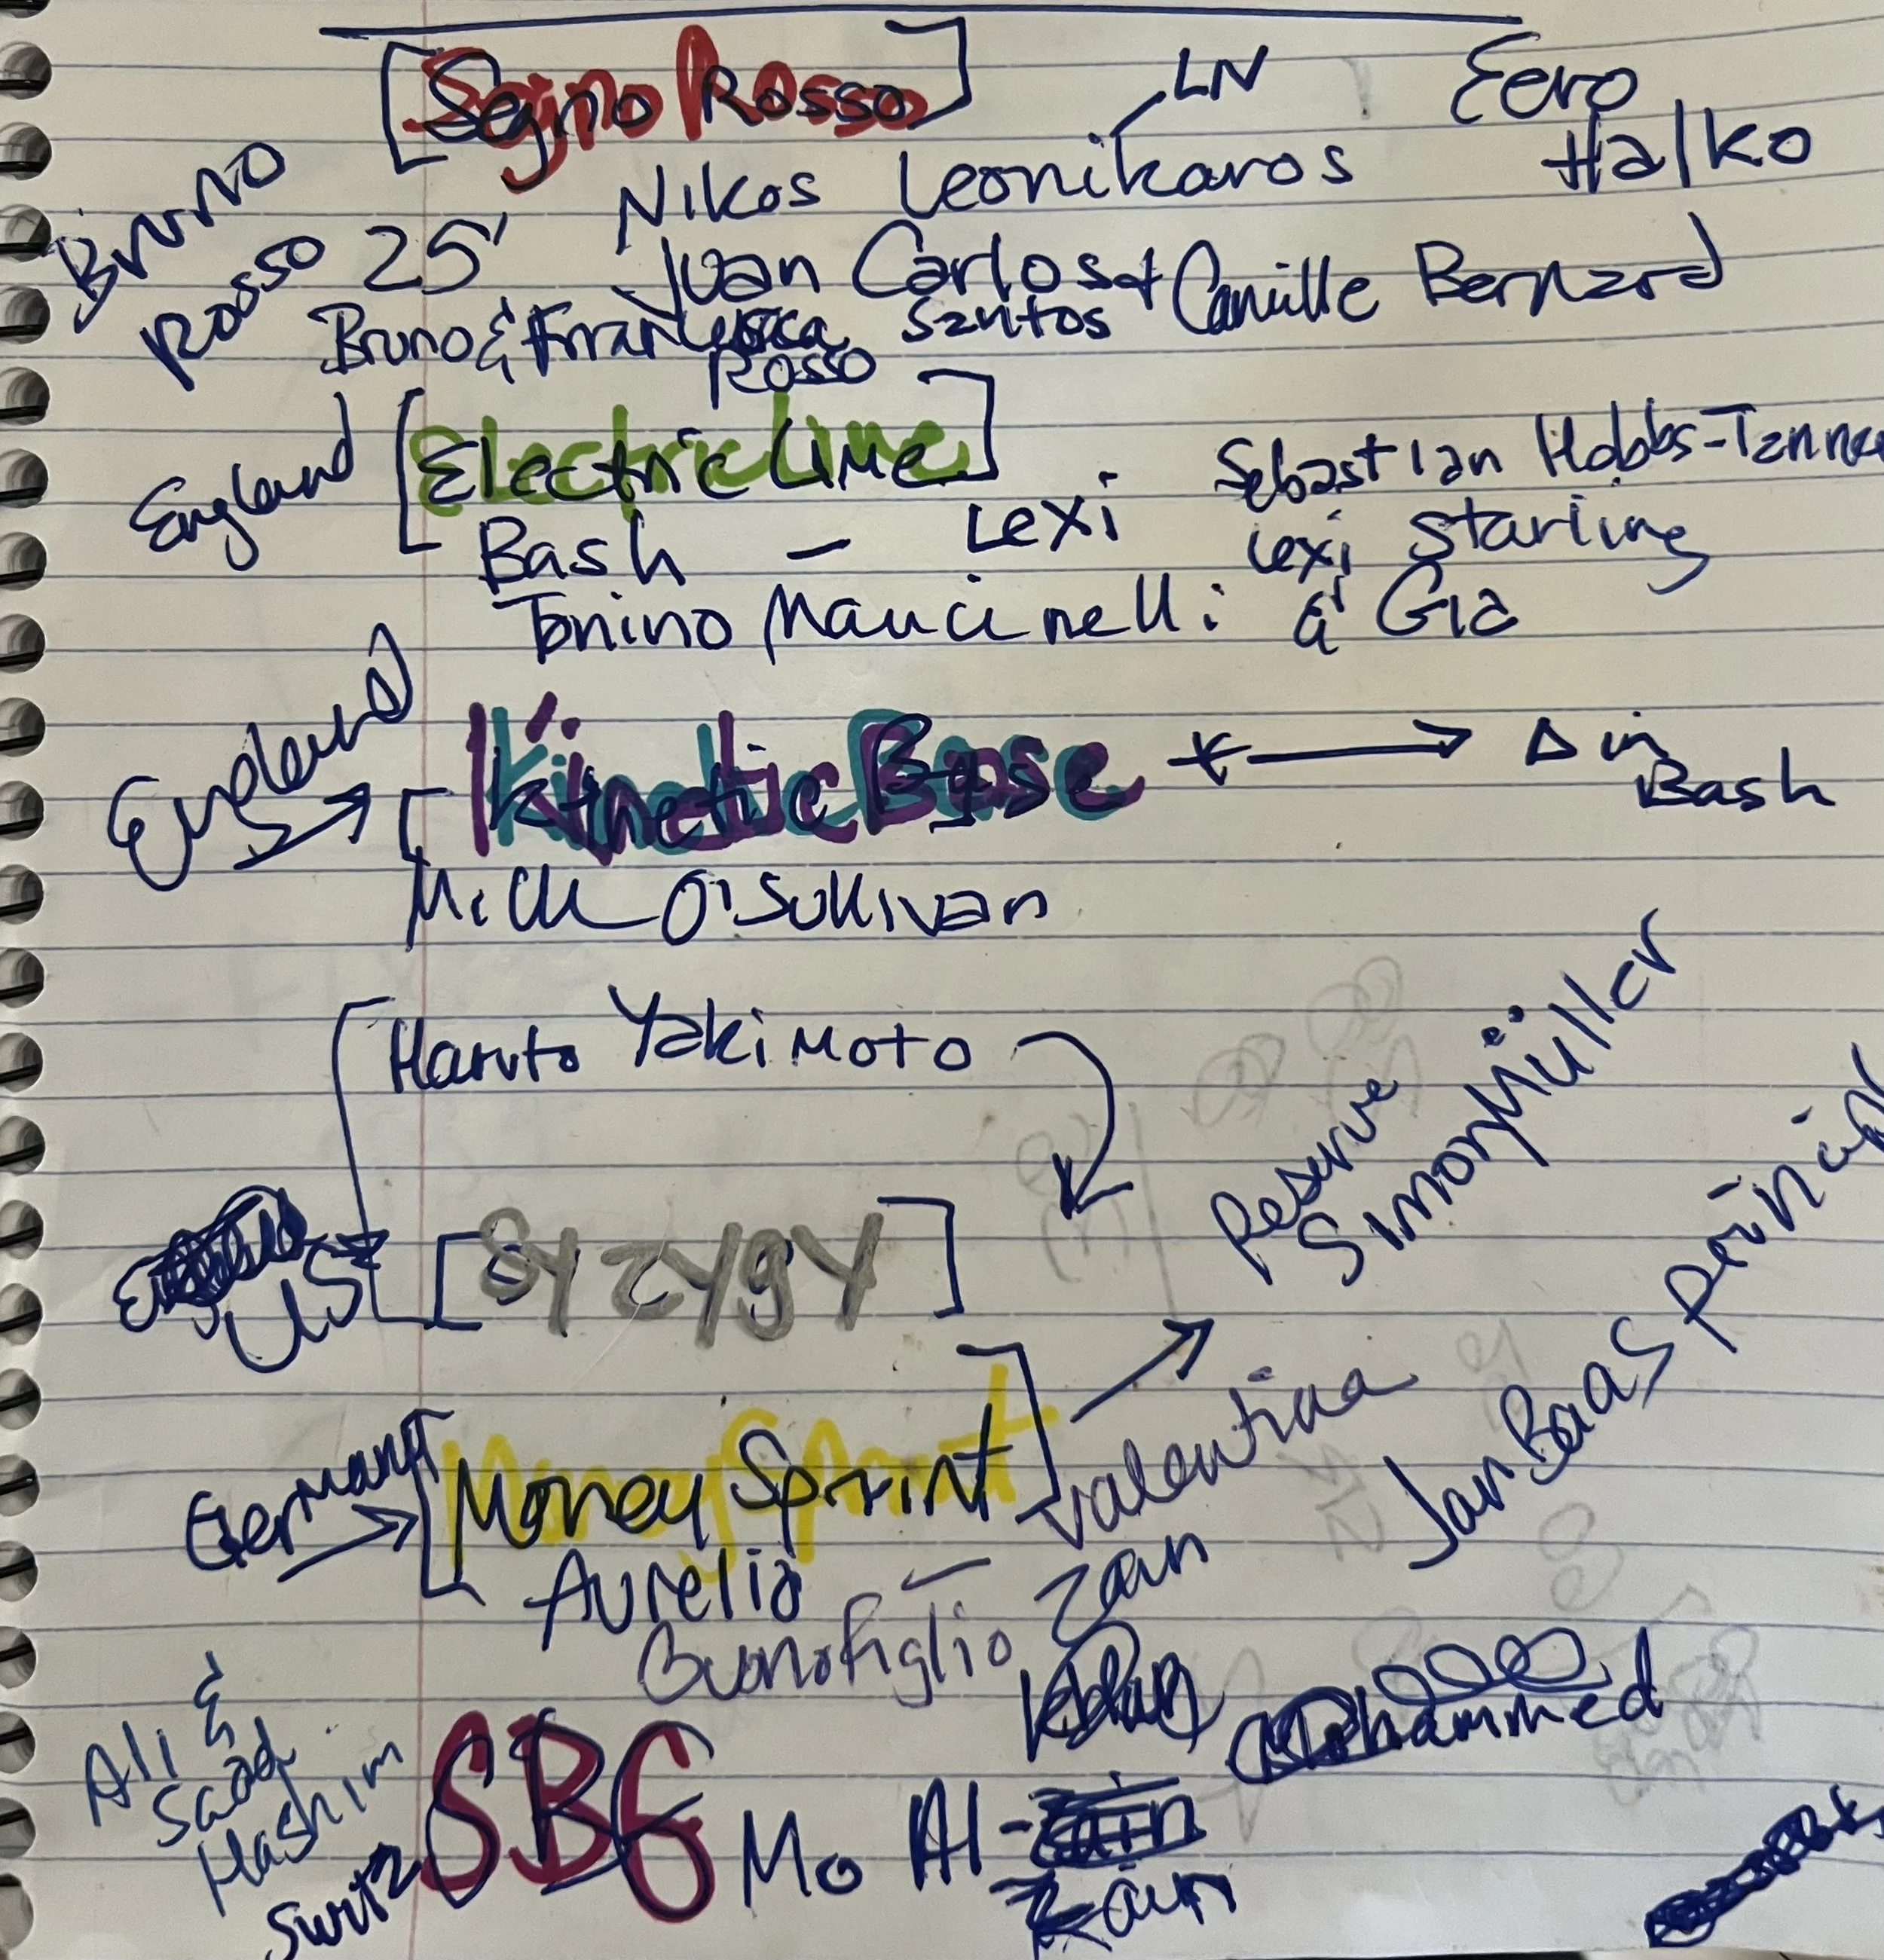 [Segno Rosso]
LN
Eero
Halko
Bruno
Rosso
25'
Nikos Leonikaros
Juan Carlos + Camille Bernard
Santos
Bruno & Francesca
Rosso
England
[Electric Line]
Bash - Lexi
Sebastian Hobbs-Tanner
Lexi Starling
& Gia
Tonino Mancinelli
England
[Kinetic Base * → Δ in
Bash
Mick O'Sullivan
Haruto Yakimoto
US
[Syzygy]
Reserve
Simon Müller
Jan Baas
Germany
[Money Sprint]
Valentina
Zan
Aurelio -
Buonofiglio
Ali &
Saad
Hashim
SBG
Mo Al-